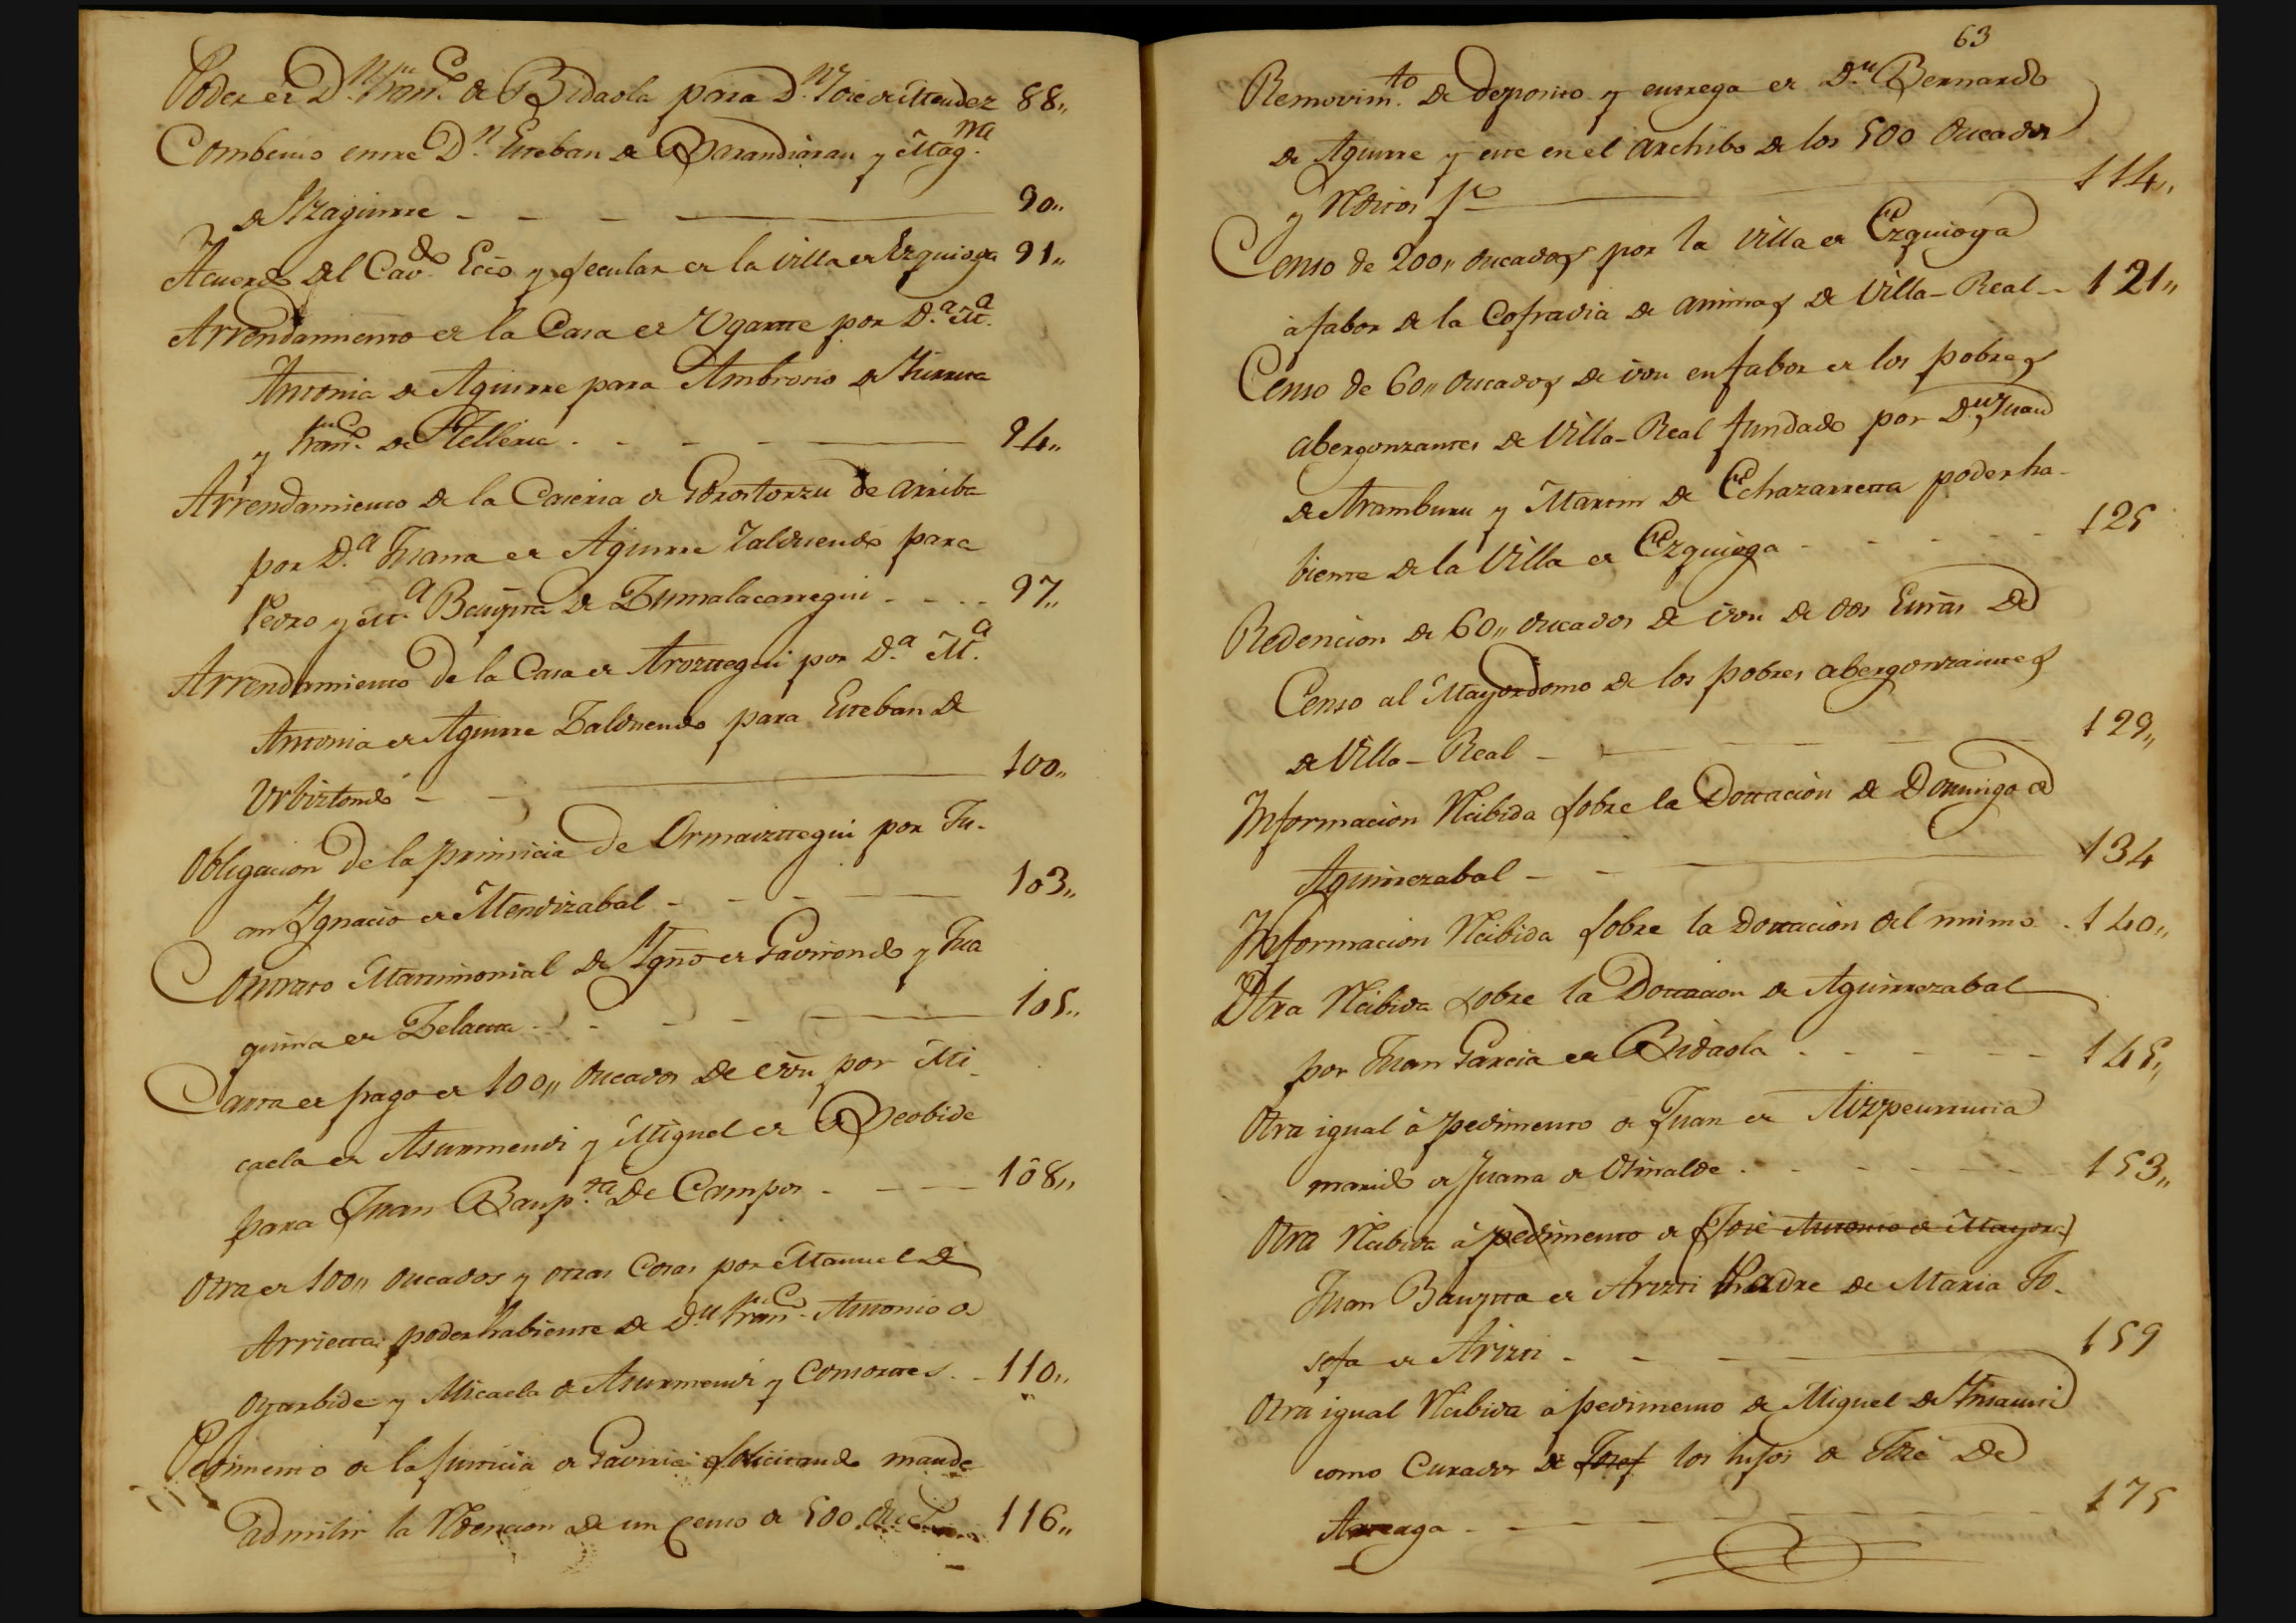 Poder de D.n Fran.co de Bidaola para D.n Jose de Mendez 88,,
Combenio entre D.n Esteban de Barandiaran y Mag.na
de Yzaguirre - - - - 90,,
Acuerdo del Cav.do Ecco y secular de la villa de Ezquioga 91,,
Arrendamiento de la Casa de Ugarte por D.a M.a
Antonia de Aguirre para Ambrosio de
y Fran.co de Telleria . - - - 94,,
Arrendamiento de la Caseria de Gorostorzu de arriba
por D.a Juana de Aguirre Zalduendo para
Pedro y M.a Baupta de Zumalacarregui - - - - 97,,
Arrendamiento de la Casa de Aroztegui por D.a M.a
Antonia de Aguirre Zalduendo para Esteban de
Urbiztondo - - 100,,
Obligacion de la primicia de Ormaiztegui por Ju-
an Ygnacio de Mendizabal - - - - 103,,
Contrato Matrimonial de Ygno de Gavirondo y Joa
quina de Zelaeta - - - - - 105,,
Carta de pago de 100,, ducados de von por Mi-
caela de Asurmendi y Miguel de Beobide
para Juan Baup.ta de Campos - - - - 108,,
Otra de 100,, ducados y otras Cosas por Manuel de
Arrietta poderhabiente de D.n Fran.co Antonio de
Oyarbide y Micaela de Asurmendi y Consortes - - 110,,
Pedimento de la Justicia de Gaviria solicitando mande
admitir la Redencion de un Censo de 500 duc.s 116,,
63
Removim.to de deposito y entrega de D.n Bernardo
de Aguirre y este en el archibo de los 500 ducados
y Reditos 114,,
Censo de 200,, ducados por la villa de Ezquioga
à fabor de la Cofradia de animas de Villa-Real - - 121,,
Censo de 60,, ducados de von en fabor de los pobres
abergonzantes de Villa-Real fundado por D.n Juan
de Aramburu y Martin de Echazarreta poderha-
biente de la Villa de Ezquioga - - - - - 125
Redencion de 60,, ducados de von de dos Escras de
Censo al Mayordomo de los pobres abergonzantes
de Villa-Real - - - - 129,,
Informacion Recibida sobre la Dottacion de Domingo de
Aguirrezabal - - 134
Informacion Recibida sobre la Dottacion del mismo - . 140,,
Otra Recibida sobre la Dottacion de Aguirrezabal
por Juan Garcia de Bidaola . - - - - - 145,,
Otra igual à pedimento de Juan de Aizpeurrutia
marido de Juana de Osinalde . - - - - - 153,,
Otra Recibida à pedimento de Jose Antonio de Mayora
Juan Bauptta de Arizti Padre de Maria Jo-
sefa de Arizti - - - - 159
Otra igual Recibida à pedimento de Miguel de
como Curador de Josef los hijos de José de
Arteaga - - - - - - - 175